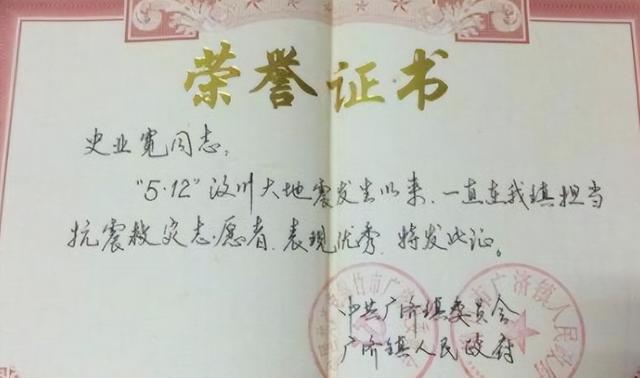 荣誉证书
史业宽同志:
“5·12”汶川大地震发生以来、一直在我镇担当
抗震救灾志愿者、表现优秀、特发此证。
中共广济镇委员会
广济镇人民政府
竹市广济镇
市广济镇人民政府